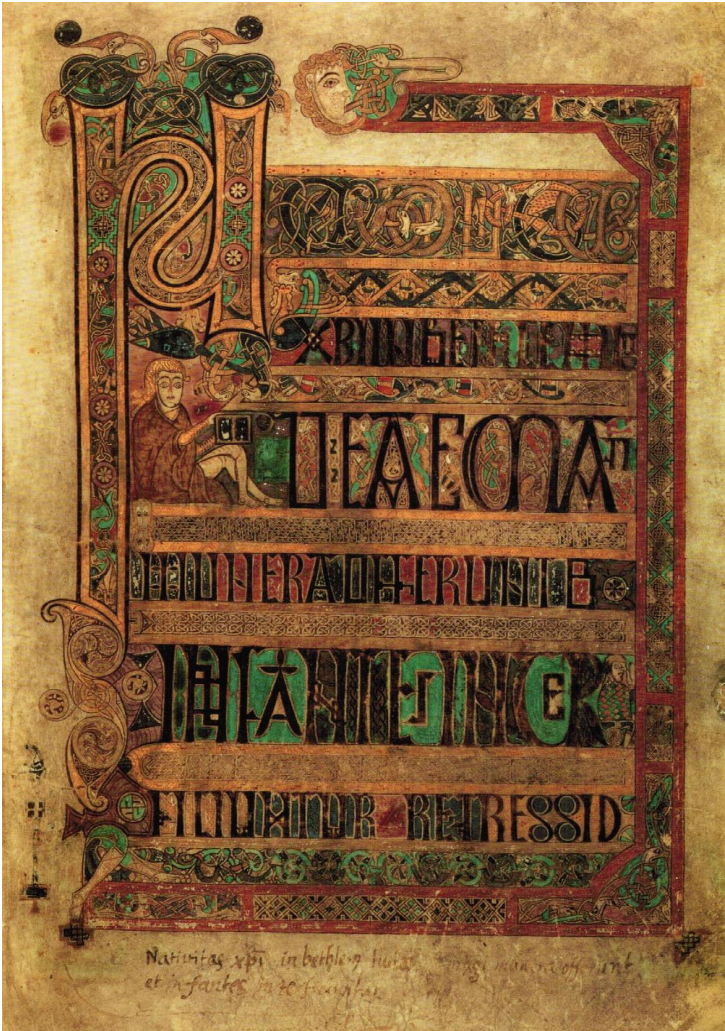 NATIUITAS
XPI IN BETHLEM
IUDEAE MA
MUNERA OFFERUNT &
INFANTES INTER
FICIUNTUR REGRESSIO
Nativitas xpi in bethlem Iudae magi munera offerunt
et infantes